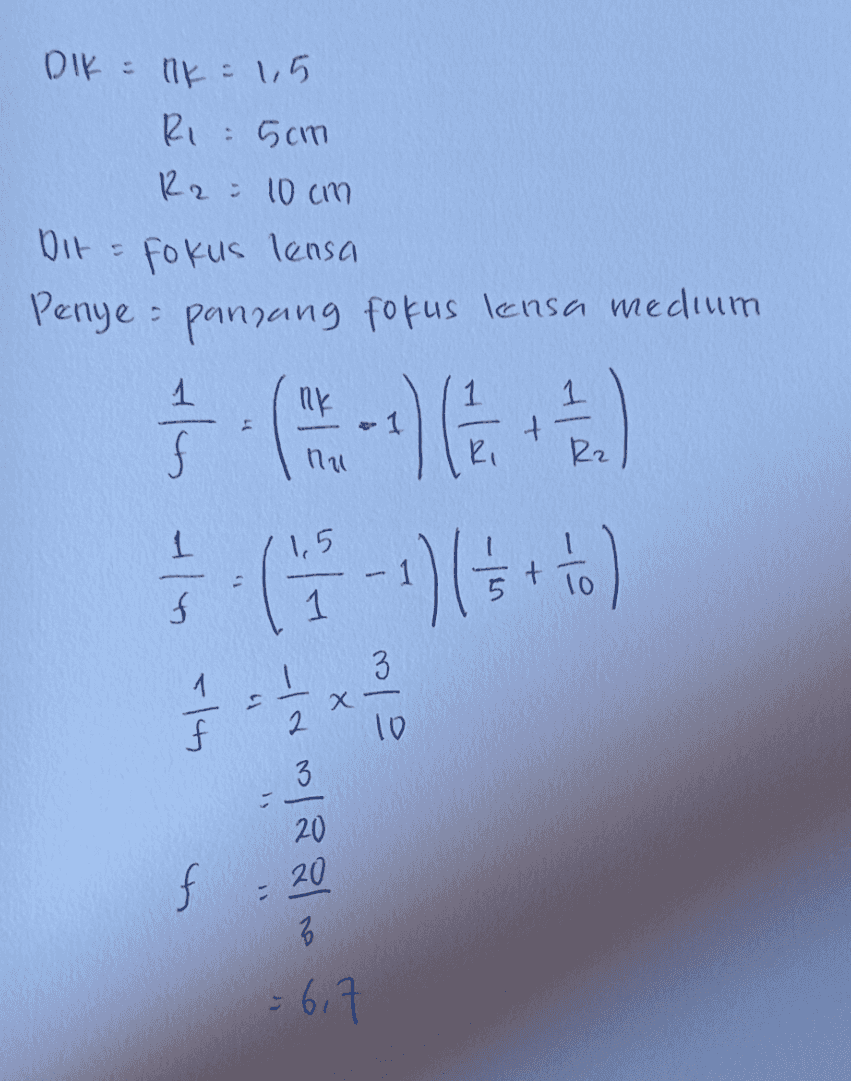 DIK = nk = 1,5
R1 : 5cm
R2 = 10 cm
Dit = fokus lensa
Penye = panjang fokus lensa medium
1/f = (nk/nu - 1) (1/R1 + 1/R2)
1/f = (1,5/1 - 1) (1/5 + 1/10)
1/f = 1/2 x 3/10
= 3/20
f = 20/3
= 6,7